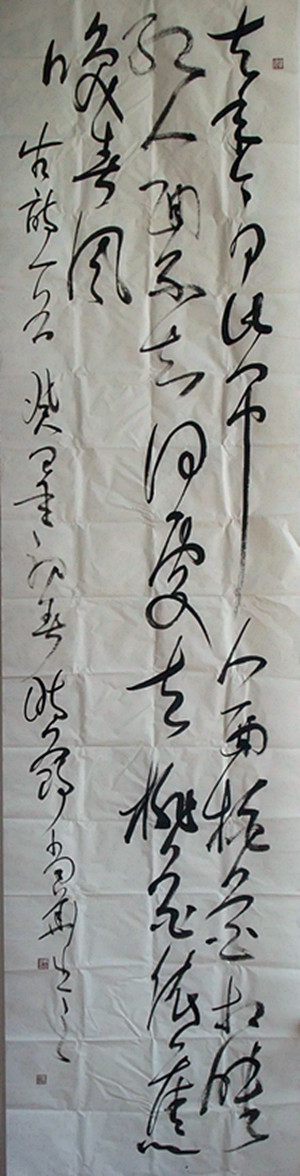 去年今日此門中人面桃花相映
紅人面不知何處去桃花依舊
笑春風
古詩一首 年初春